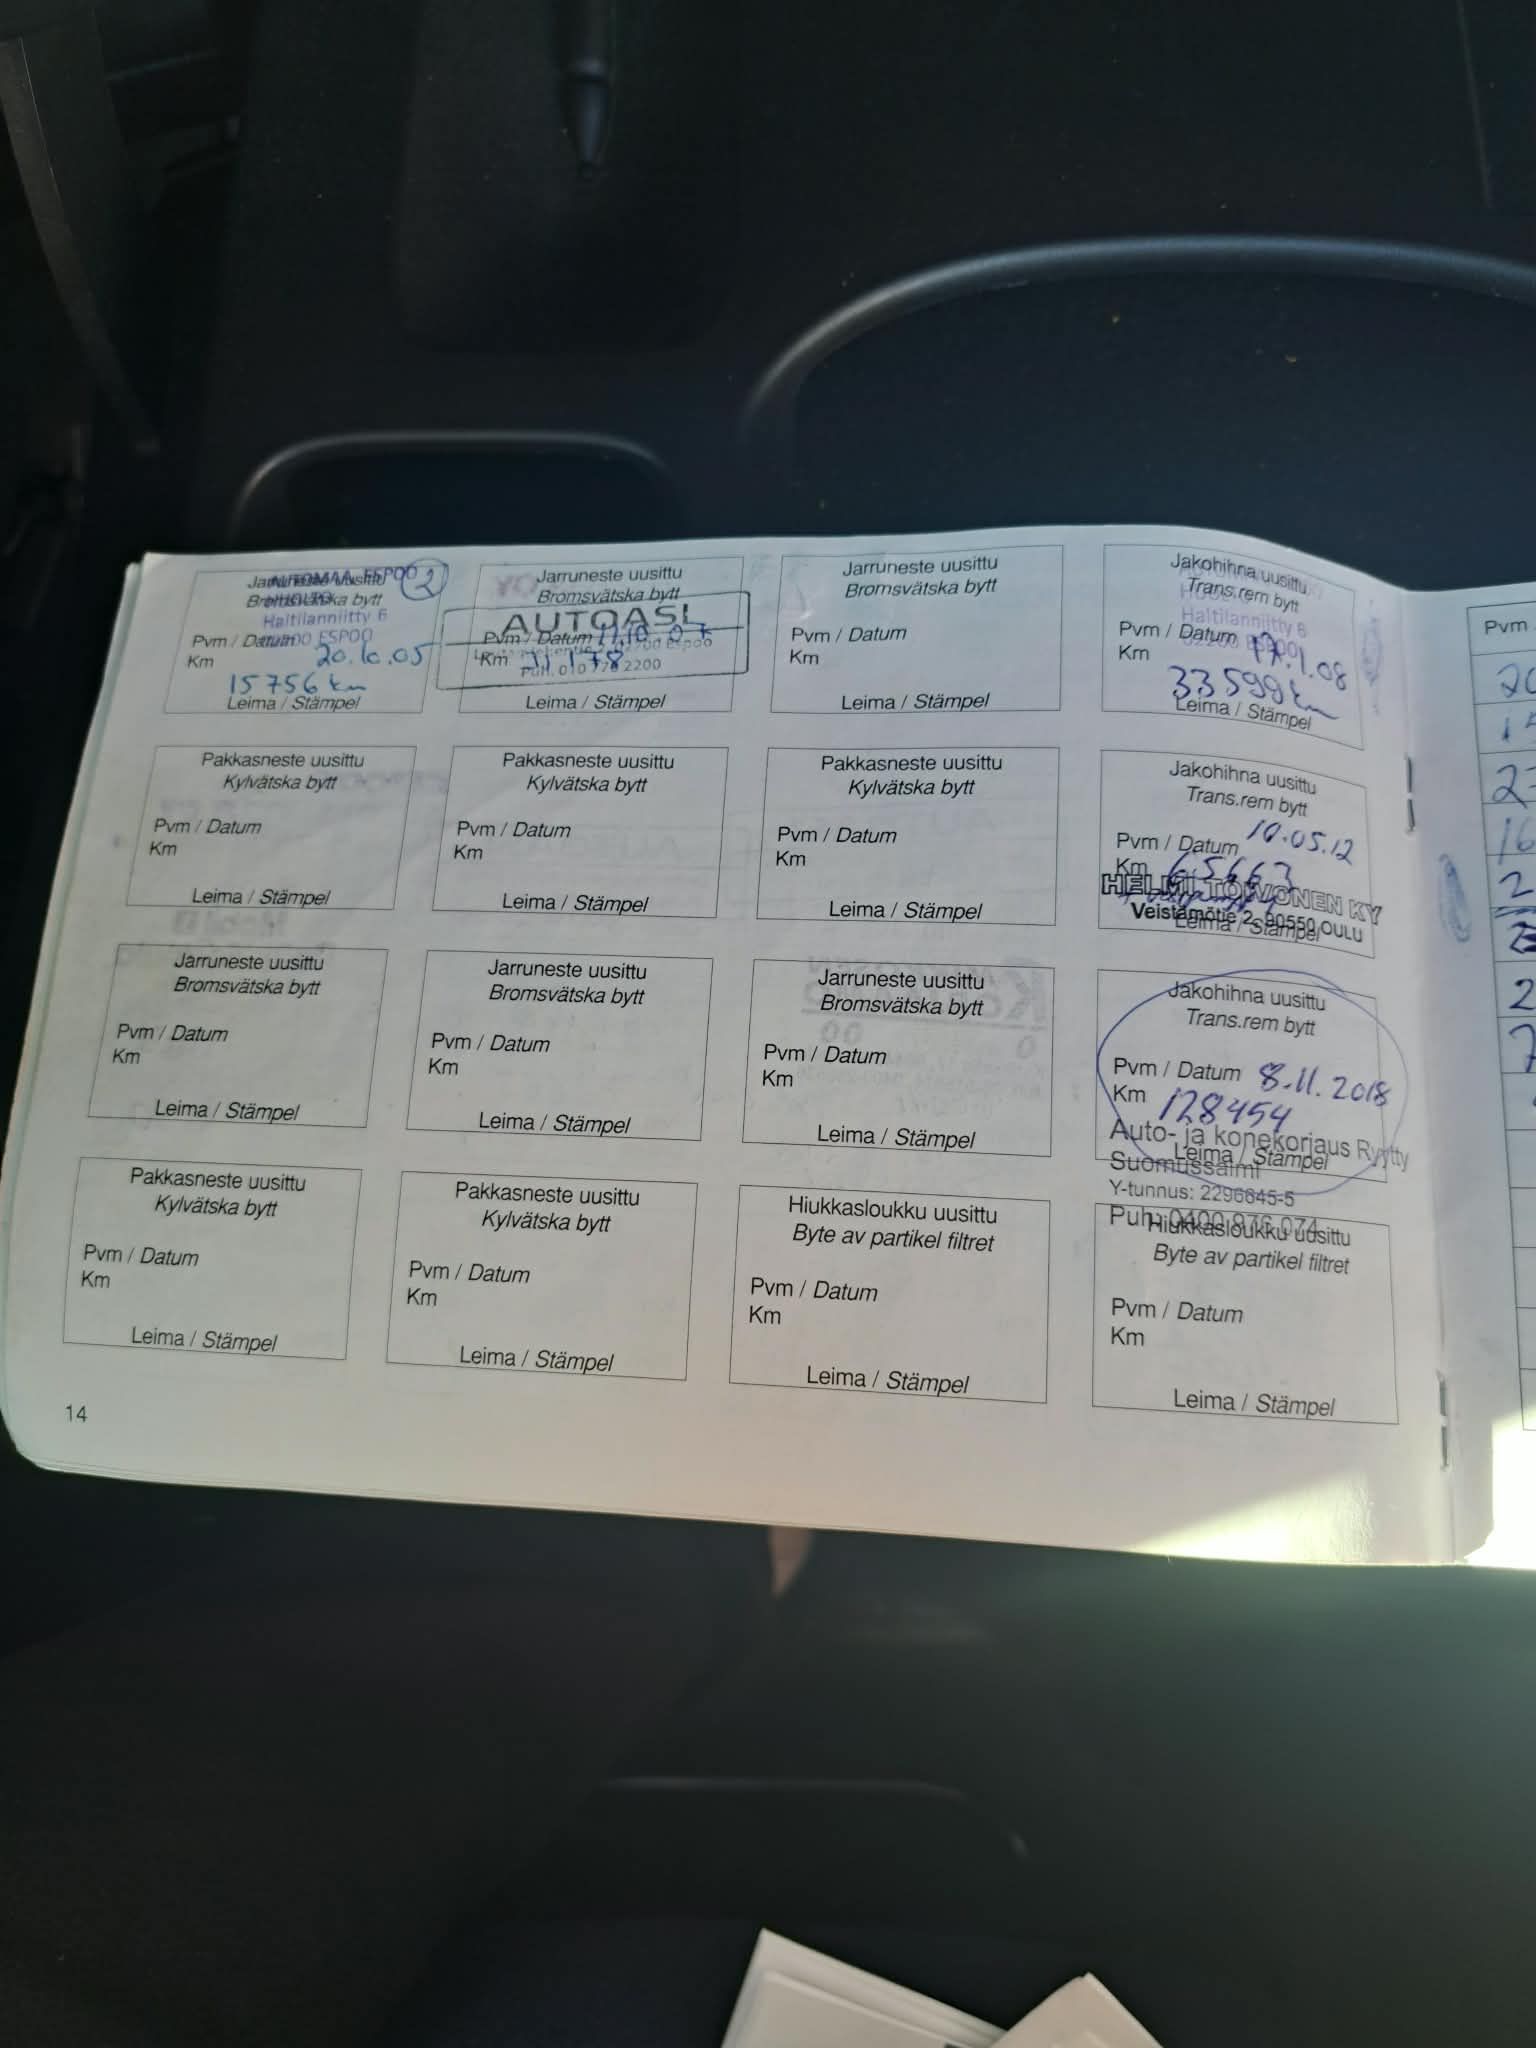 AUTOMAA ESPOO
HUOLTO
Haltilanniitty 6
02200 ESPOO
2
Jarruneste uusittu
Bromsvätska bytt
Pvm / Datum 20.10.05
Km 15756 km
Leima / Stämpel
Jarruneste uusittu
Bromsvätska bytt
AUTOASI
Pvm / Datum 11.10.07
Km 31178
02700 Espoo
Puh. 010 778 2200
Leima / Stämpel
Jarruneste uusittu
Bromsvätska bytt
Pvm / Datum
Km
Leima / Stämpel
Jakohihna uusittu
Trans.rem bytt
Haltilanniitty 6
02200 ESPOO
Pvm / Datum 17.1.08
Km 33599 km
Leima / Stämpel
Pakkasneste uusittu
Kylvätska bytt
Pvm / Datum
Km
Leima / Stämpel
Pakkasneste uusittu
Kylvätska bytt
Pvm / Datum
Km
Leima / Stämpel
Pakkasneste uusittu
Kylvätska bytt
Pvm / Datum
Km
Leima / Stämpel
Jakohihna uusittu
Trans.rem bytt
Pvm / Datum 10.05.12
Km 65663
HELMI TOIVONEN KY
Veistämötie 2, 90550 OULU
Leima / Stämpel
Jarruneste uusittu
Bromsvätska bytt
Pvm / Datum
Km
Leima / Stämpel
Jarruneste uusittu
Bromsvätska bytt
Pvm / Datum
Km
Leima / Stämpel
Jarruneste uusittu
Bromsvätska bytt
Pvm / Datum
Km
Leima / Stämpel
Jakohihna uusittu
Trans.rem bytt
Pvm / Datum 8.11.2018
Km 128454
Auto- ja konekorjaus Ryytty
Leima / Stämpel
Suomussalmi
Y-tunnus: 2296845-5
Puh: 0400 976 074
Pakkasneste uusittu
Kylvätska bytt
Pvm / Datum
Km
Leima / Stämpel
Pakkasneste uusittu
Kylvätska bytt
Pvm / Datum
Km
Leima / Stämpel
Hiukkasloukku uusittu
Byte av partikel filtret
Pvm / Datum
Km
Leima / Stämpel
Hiukkasloukku uusittu
Byte av partikel filtret
Pvm / Datum
Km
Leima / Stämpel
14
Pvm